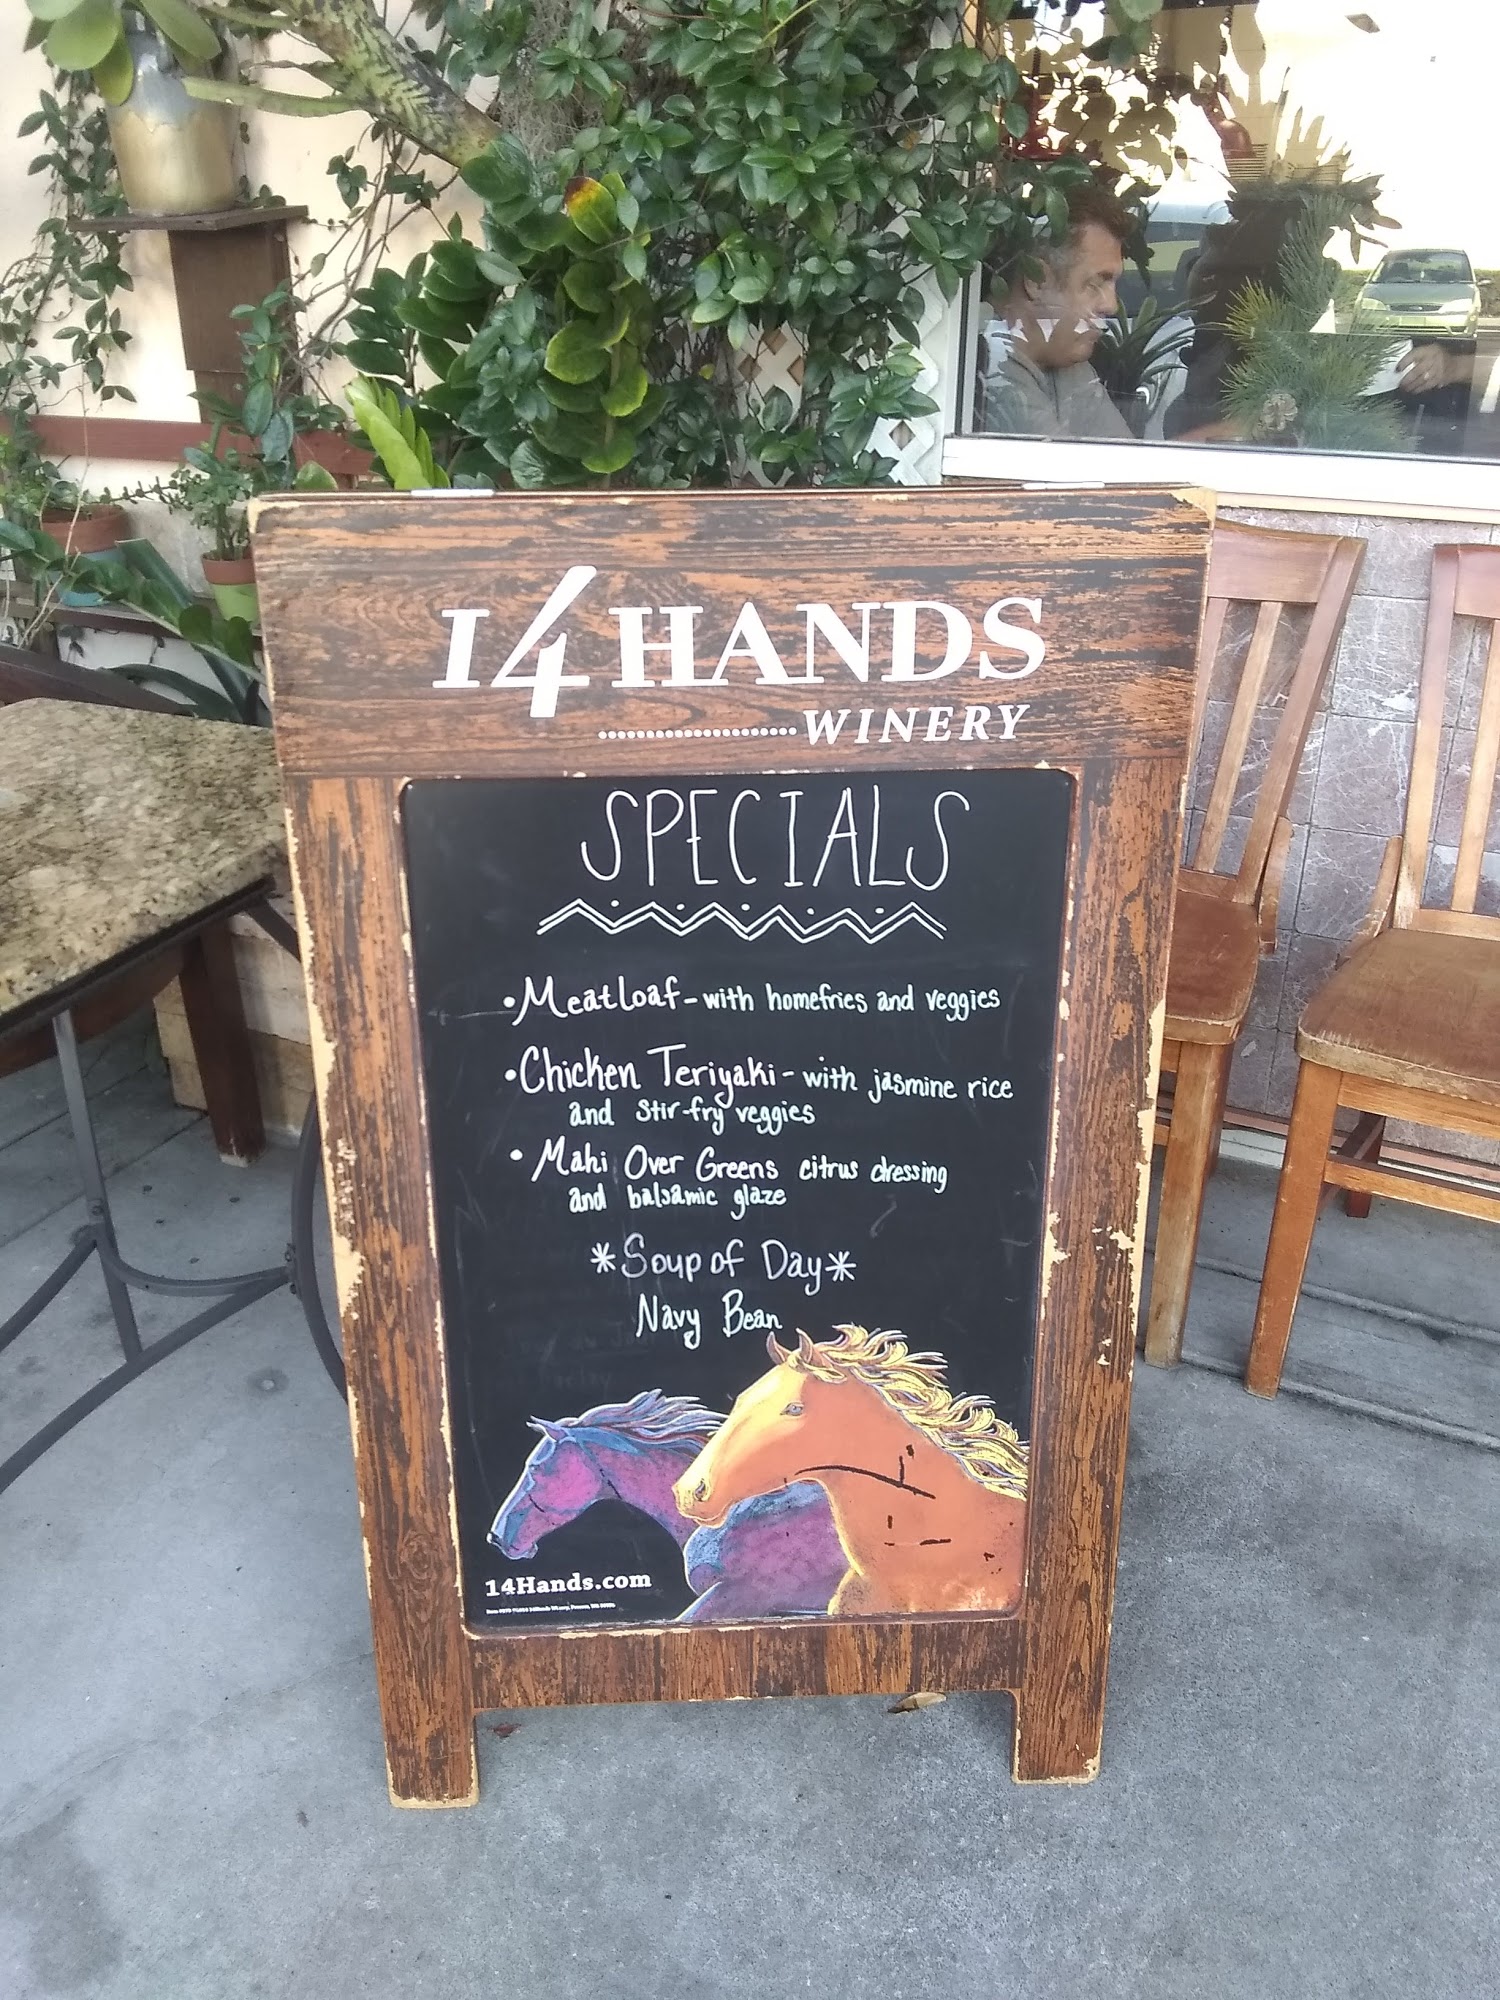 14 HANDS
WINERY
SPECIALS
• Meatloaf - with homefries and veggies
• Chicken Teriyaki - with jasmine rice
and stir-fry veggies
• Mahi Over Greens citrus dressing
and balsamic glaze
*Soup of Day*
Navy Bean
14Hands.com